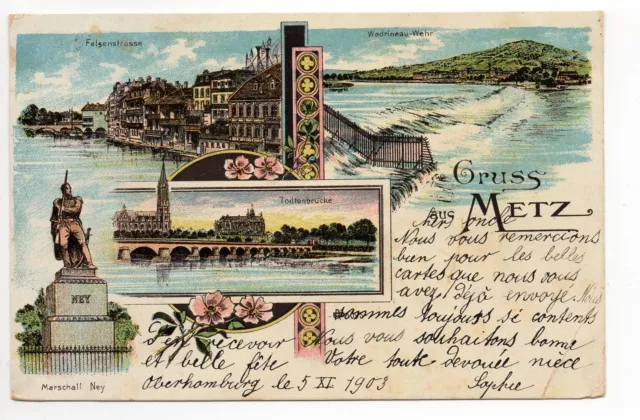 Felsenstrasse
Wadrineau-Wehr
Gruss
aus METZ
Todtenbrücke
NEY
Marschall Ney
chers oncle
Nous vous remercions
bien pour les belles
cartes que nous vous
avez déjà envoyé. Nous
sommes toujours si contents
d'en recevoir Nous vous souhaitons bonne
et belle fête Votre toute dévouée nièce
Oberhomburg le 5 XI 1903 Sophie